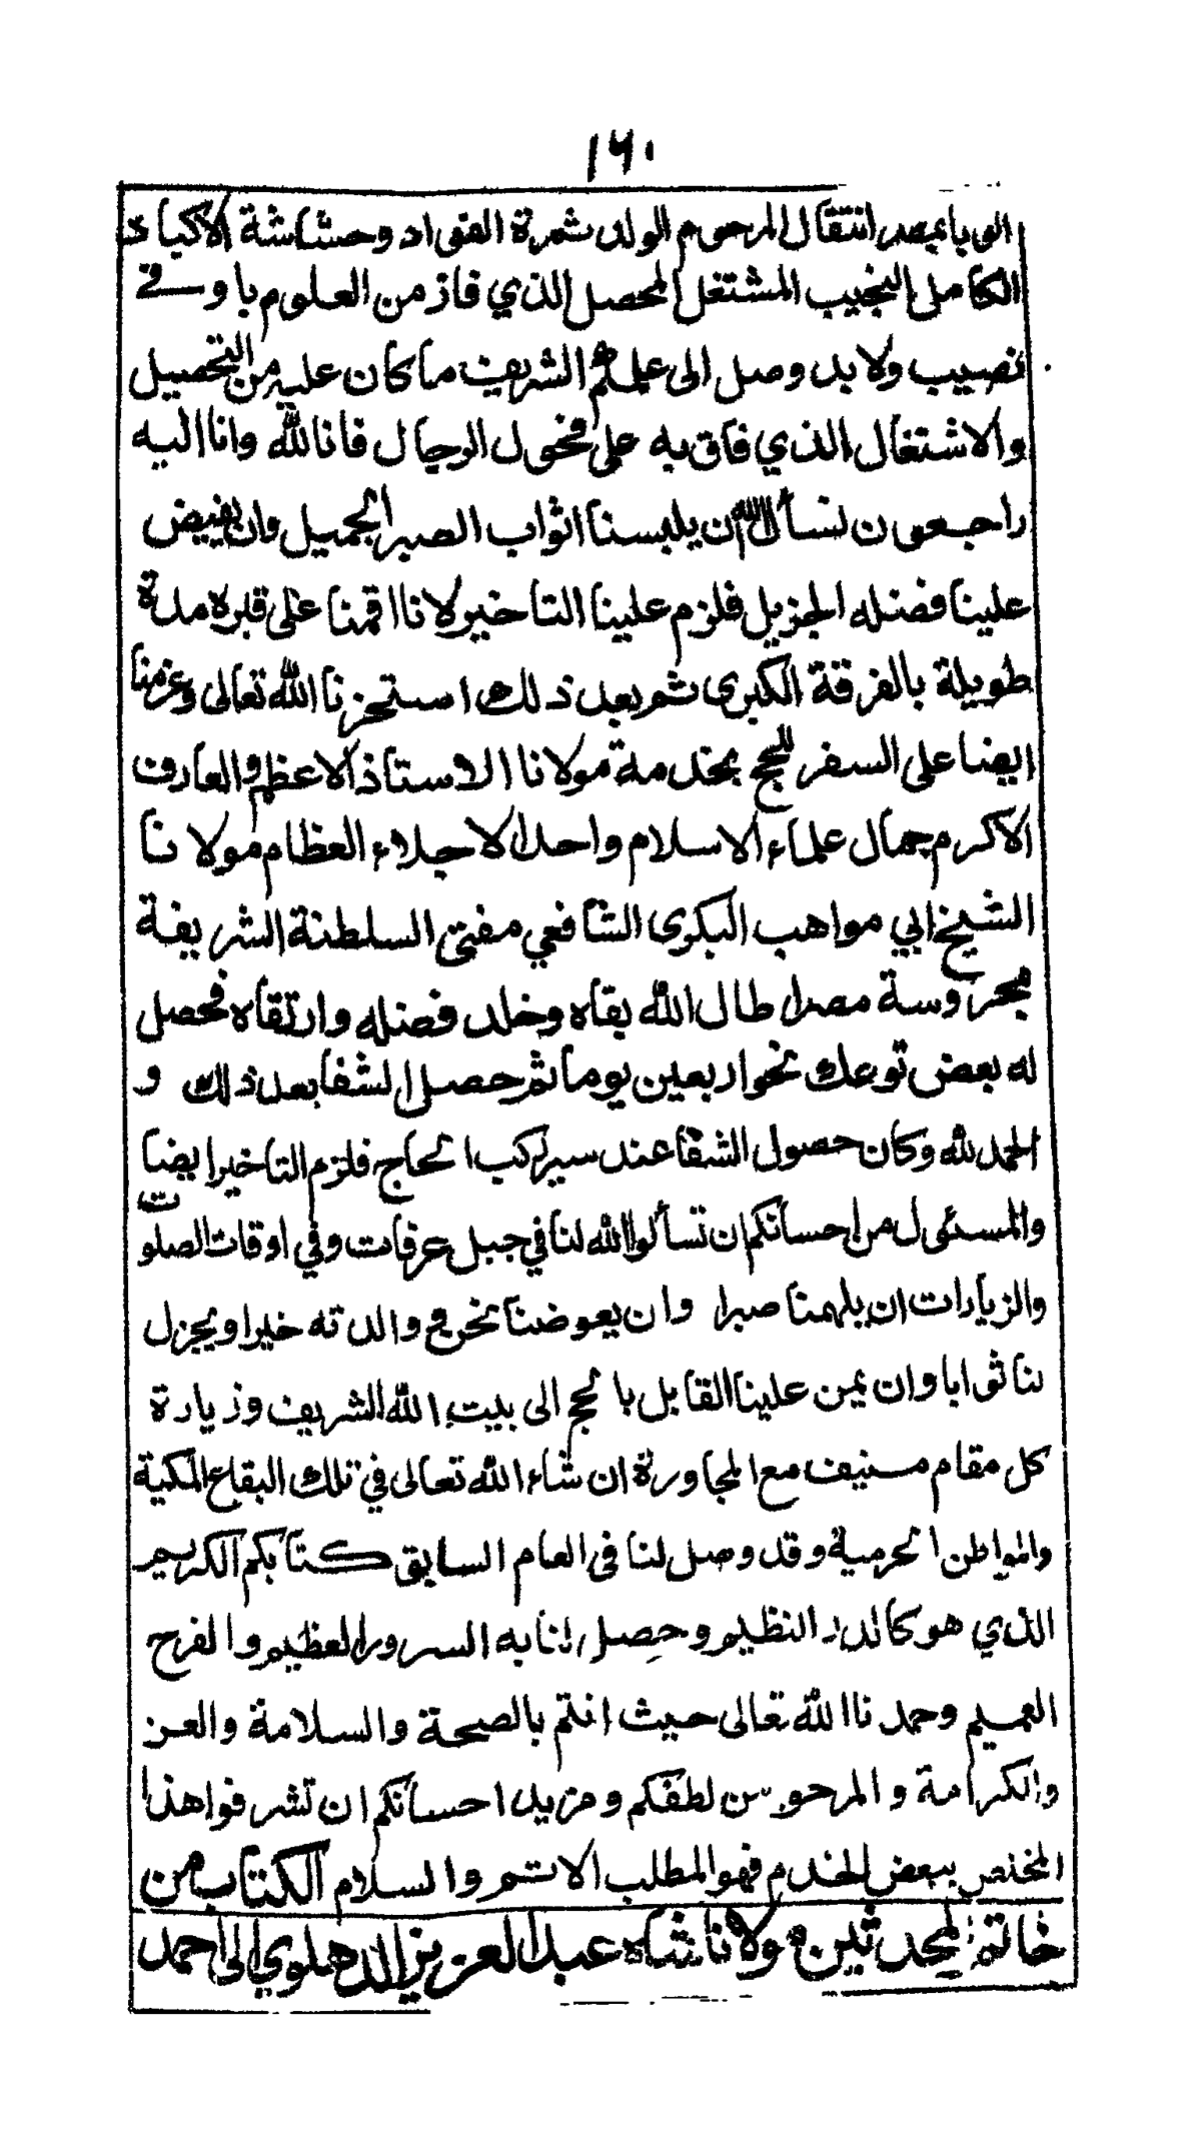 ١٦٠
الوبا بمصر انتقال المرحوم الولد ثمرة الفواد وحشاشة الاكباد
الكامل النجيب المشتغل المحصل الذي فاز من العلوم باوفى
نصيب ولا بد وصل الى علمكم الشريف ما كان عليه من التحصيل
والاشتغال الذي فاق به على فحول الرجال فانا لله وانا اليه
راجعون نسأل الله ان يلبسنا اثواب الصبر الجميل وان يفيض
علينا فضله الجزيل فلزم علينا التاخير لانا اقمنا على قبره مدة
طويلة بالفرقة الكبرى ثم بعد ذلك استخرنا الله تعالى وعزمنا
ايضا على السفر للحج بخدمة مولانا الاستاذ الاعظم والعارف
الاكرم جمال علماء الاسلام واحد الاجلاء العظام مولانا
الشيخ ابي مواهب البكرى الشافعي مفتى السلطنة الشريفة
بمحروسة مصر اطال الله بقاه وخلد فضله وارتقاه فحصل
له بعض توعك نحو اربعين يوما ثم حصل الشفا بعد ذلك و
الحمد لله وكان حصول الشفا عند سير ركب الحاج فلزم التاخير ايضا
والمسئول من احسانكم ان تسألوا الله لنا في جبل عرفات وفي اوقات الصلوت
والزيارات ان يلهمنا صبرا وان يعوضنا نحن و والدته خيرا ويجزل
لنا ثوابا وان يمن علينا القابل بالحج الى بيت الله الشريف وزيارة
كل مقام منيف مع المجاورة ان شاء الله تعالى في تلك البقاع المكية
والمواطن الحرمية وقد وصل لنا فى العام السابق كتابكم الكريم
الذي هو كالدر النظيم وحصل لنا به السرور العظيم والفرح
العميم وحمدنا الله تعالى حيث انتم بالصحة والسلامة والعز
والكرامة والمرجو من لطفكم ومزيد احسانكم ان تشرفوا هذا
المخلص ببعض الخدم فهو المطلب الاتم والسلام الكتاب من
خاتم المحدثين مولانا شاه عبد العزيز الدهلوي الى احمد